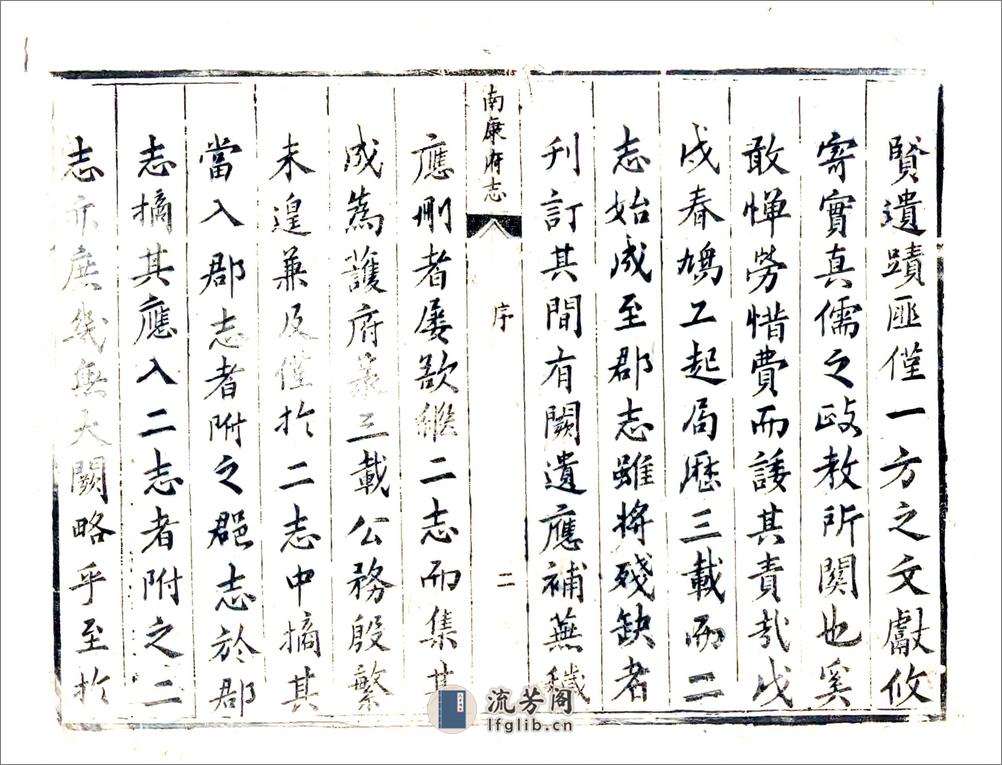 賢遺蹟匪僅一方之文獻攸
寄實真儒之政教所関也奚
敢憚勞惜費而諉其責哉戊
戌春鳩工起局歷三載而二
志始成至郡志雖將殘缺者
刋訂其間有闕遺應補蕪穢
南康府志
序
二
應刪者屡欲繼二志而集其
成爲護府篆三載公務殷繁
未遑兼及僅於二志中摘其
當入郡志者附之郡志於郡
志摘其應入二志者附之二
志亦庶幾無大闕略乎至於
流芳阁
lfglib.cn